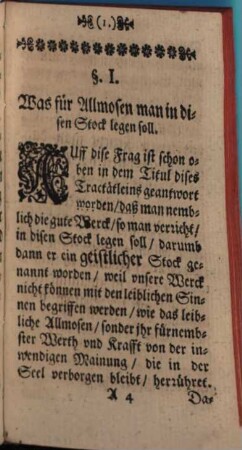 (1.)
§. I.
Was für Allmosen man in di-
sen Stock legen soll.
AUff dise Frag ist schon o-
ben in dem Titul dises
Tractätleins geantwort
worden/ daß man nemb-
lich die gute Werck/ so man verricht/
in disen Stock legen soll/ darumb
dann er ein geistlicher Stock ge-
nannt worden/ weil vnsere Werck
nicht können mit den leiblichen Sin-
nen begriffen werden/ wie das leib-
liche Allmosen/ sonder jhr fürnemb-
ster Werth vnd Krafft von der in-
wendigen Mainung/ die in der
Seel verborgen bleibt/ herrühret.
A 4 Da-